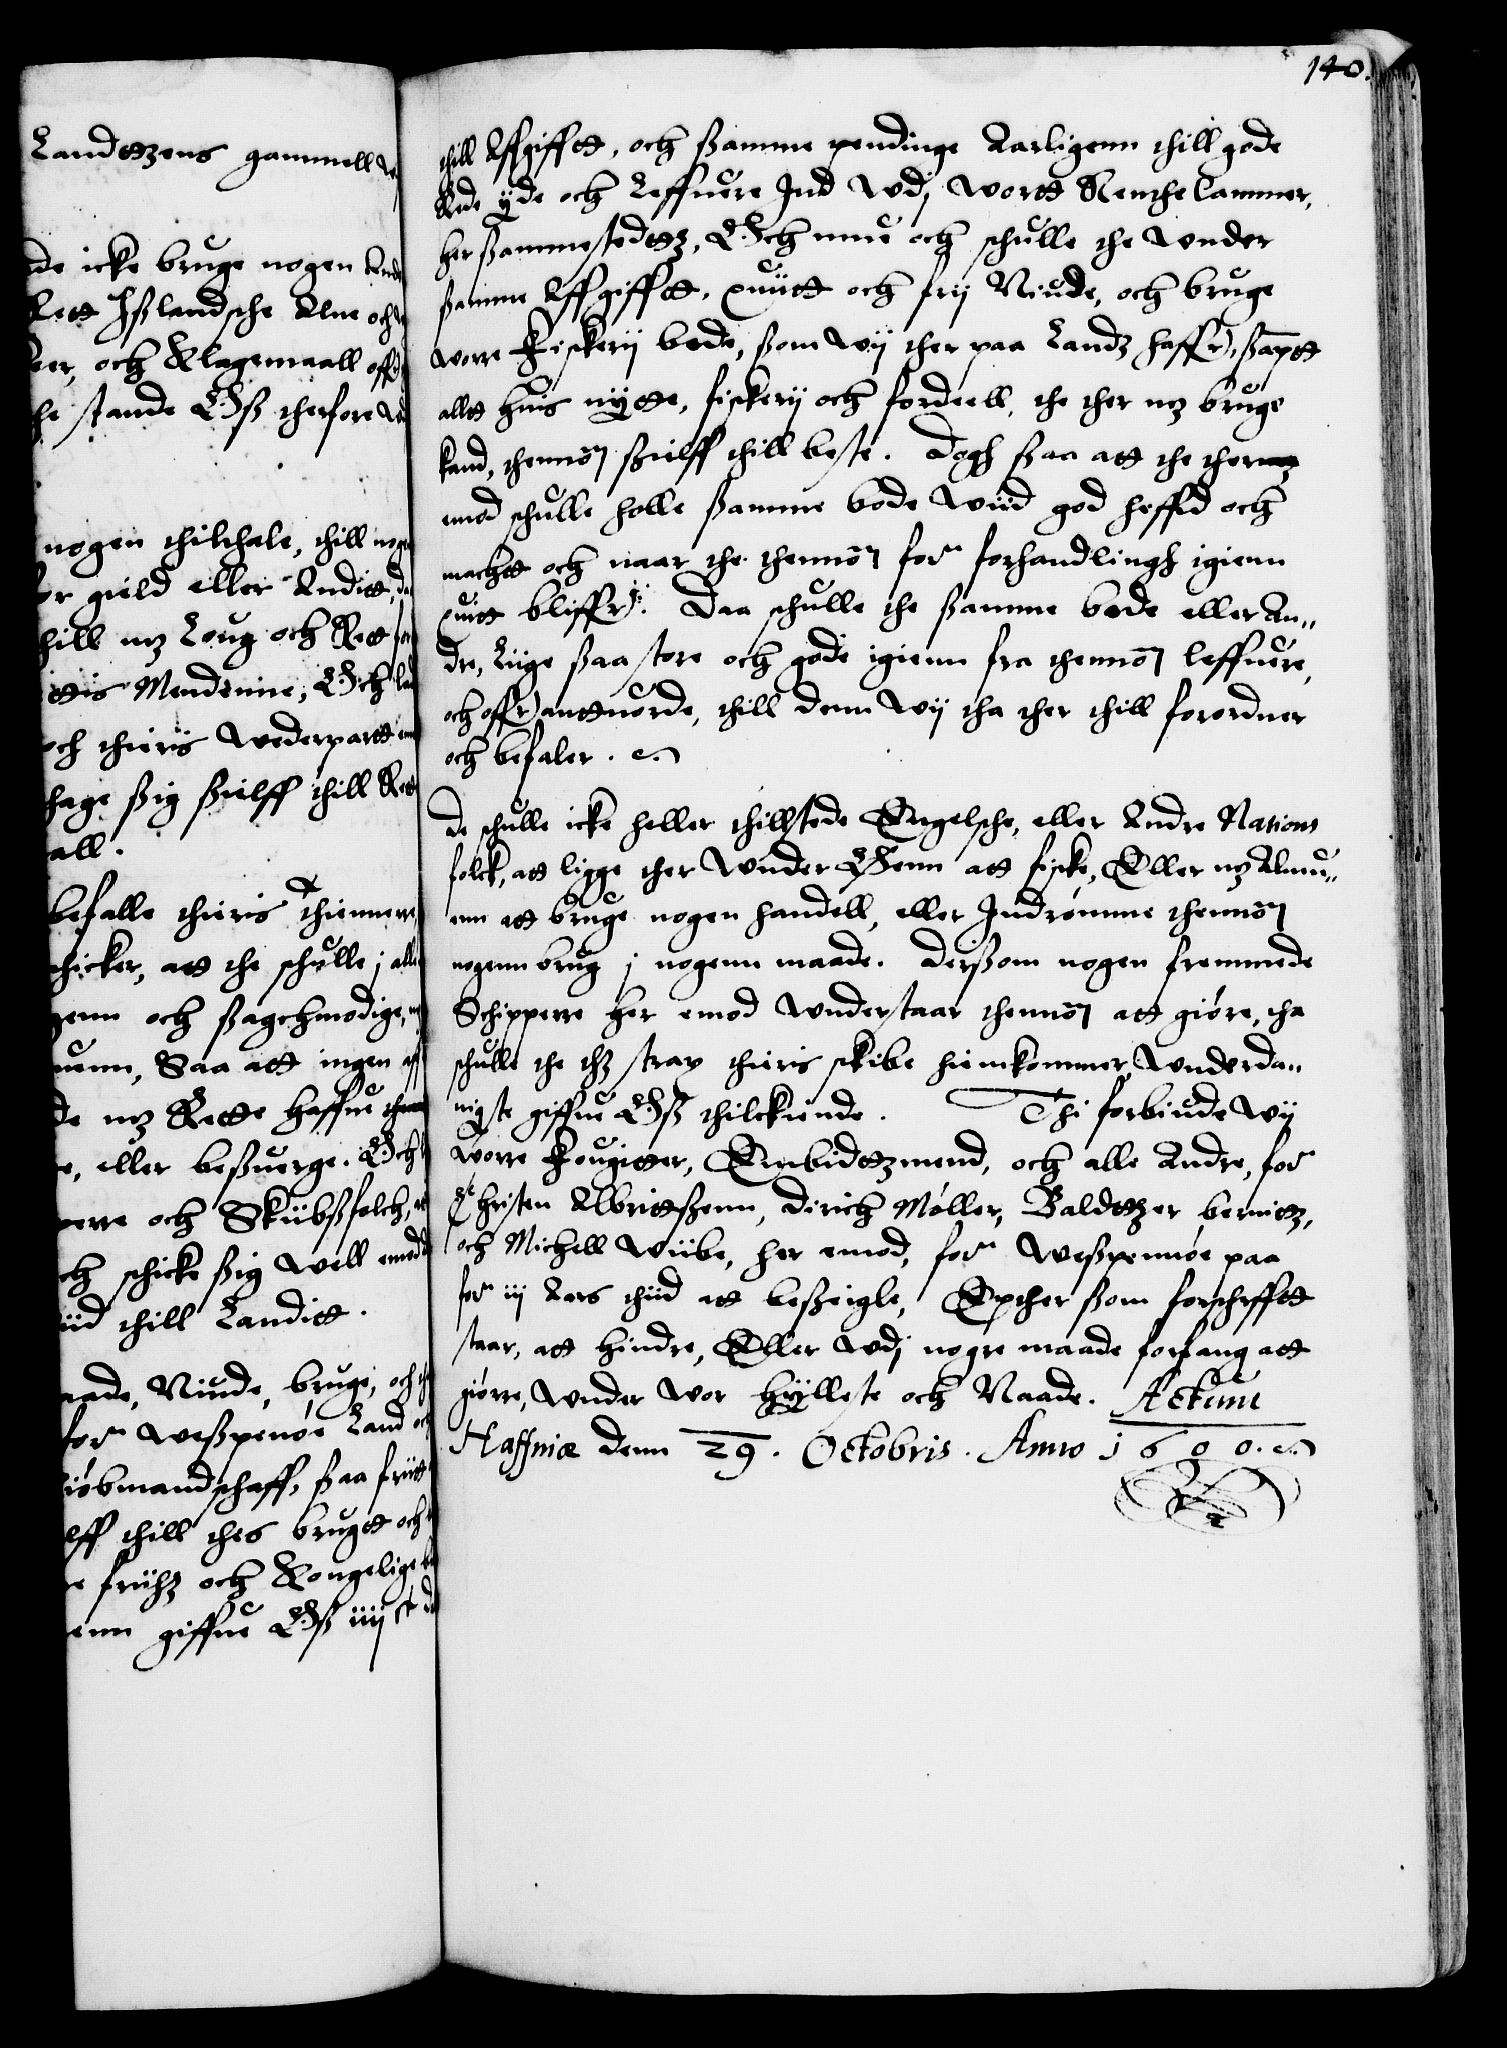 140.
Landttzens gammell
de icke bruge nogen
Rett Ißlandsche Alne och
er, och Klagemaall
he stande Oß therfore
nogen thilthale, thill
for gield eller Anditt,
thill mz Loug och Rett
ittis Mendenne, Och
och thieris Wederpartt
thage ßig ßielff thill Rett
all.
befalle thieris thiennerre,
thicker, att the schulle j alle
genn och ßagthmodige,
uenn, Saa att ingen aff
de mz Rette haffue
e, eller beßuerge. Och
perre och Skiibßfolch,
ch schicke ßig well emod
tiid thill Landitt.
aade, Niude, bruge, och
for Weßpenøe Land och
kiøbmandschaff, ßaa friitt
ielff thill thes brugtt och
e friihz och Kongelige
enn giffue Oß iiij
thill Affgifftt, och ßamme pendinge Aarligenn thill gode
Rede yde och Leffuere Ind wdj wortt Renthe Cammer,
her ßammestedttz, Och mue och schulle the wnder
ßamme Affgifftt, quiitt och frij Niude, och bruge
worre Fiskerij bode, ßom wij ther paa Landz haffr, ßamptt
alltt huis nytte, fiskerij och fordeell, the ther mz bruge
kand, thennom ßielff thill beste. Dogh ßaa att the ther
emod schulle holle ßamme bode wiid god heffd och
machtt och naar the thennom for forhandlingh igienn
quitt bliffr. Daa schulle the ßamme bode eller An„
dre, Liige ßaa store och gode igienn fra thennom leffuere,
och offr anttuorde, thill denn wij tha ther thill forordner
och befaler.
De schulle icke heller thillstede Engelsche, eller Andre Nations
folck, att ligge ther wnder Øenn att fiske, Eller mz Almu„
enn att bruge nogen handell, eller Indrømme thennom
nogenn brug j nogenn maade. Derßom nogen fremmede
Schipperre her emod wnderstaar thennom att giøre, tha
schulle the thz strax thieris skibe hiemkommer, Wnderda„
nigste giffue Oß thilckiende. Thi forbiude wij
worre Fougitter, Embidttzmend, och alle Andre, for
Christen Albrittßenn, Dirich Møller, Baldttzer bernittz,
och Michell Wiibe, her emod, for Weßpennøe paa
for iij Aars thiid att beßeigle, Epther ßom forschrfftt
staar, att hindre, Eller wdj nogre maade forfang att
giørre, wnder wor Hylleste och Naade. Actum
Haffniæ denn 29. Octobris. Anno 1600.